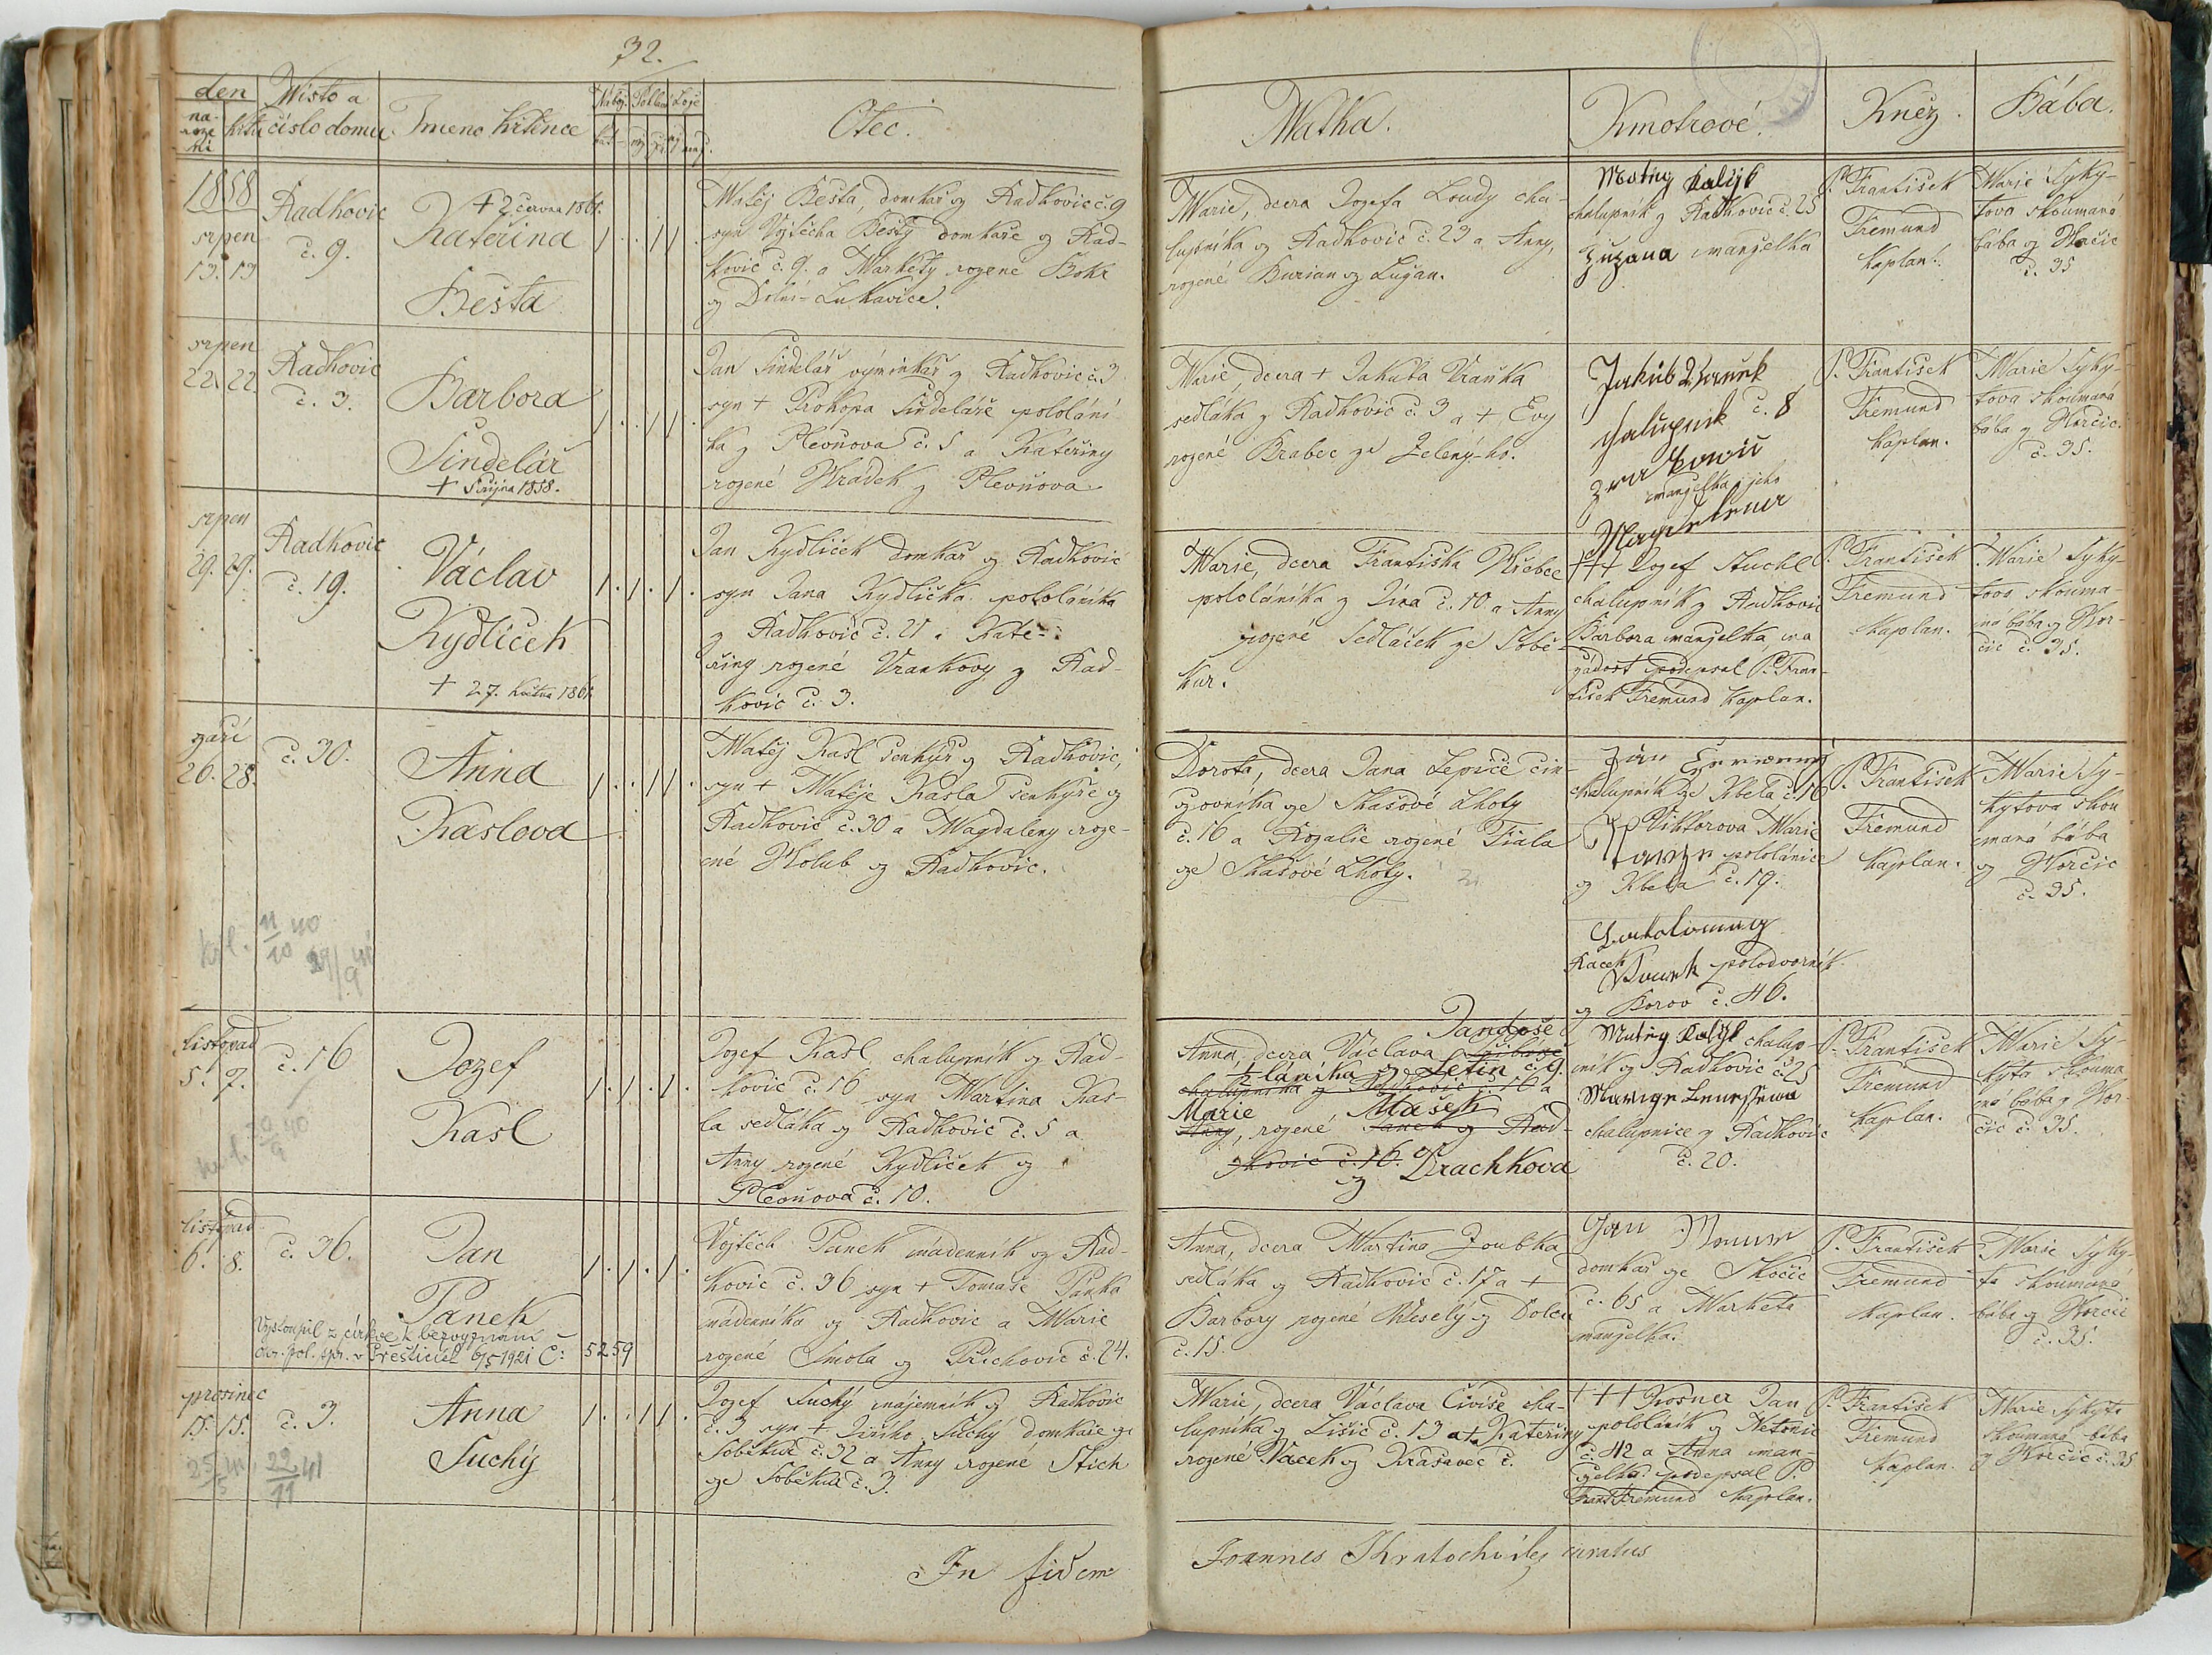 32.
den
na-
roze
ní
křtu
Místo a
číslo domu
Jmeno křtěnce
Nábož.
Pohlaví
Lože
Otec.
Matka.
Kmotrové.
Kněz.
Bába.
1858
srpen
13. 13
Radkovic
č. 9.
+ 2 června 1861.
Kateřina
Bešta
Matěj Bešta, domkář z Radkovic č. 9
syn Vojtěcha Bešty domkáře z Rad-
kovic č. 9. a Markéty rozené Boke
z Dolní-Lukavice.
Marie, dcera Jozefa Loudy cha-
lupníka z Radkovic č. 23 a Anny,
rozené Burian z Lužan.
Matěj Kalýb
chalupník z Radkovic č. 25
Zuzana manželka
P. František
Fremund
kaplan.
Marie Syky-
tova zkoumaná
bába z Horčic
č. 35
srpen
22. 22.
Radkovic
č. 3.
Barbora
Šindelář
+ 5 října 1858.
Jan Šindelář výminkář z Radkovic č. 3
syn + Prokopa Šindeláře pololání-
ka z Plevňova č. 5 a Kateřiny
rozené Hrádek z Plevňova
Marie, dcera + Jakuba Vraňka
sedláka z Radkovic č. 3 a + Evy
rozené Brabec ze Zelený-ho.
Jakub Vraněk
chalupnik č. 8
manželka jeho
Magdelena
P. František
Fremund
kaplan.
Marie Syky-
tova zkoumaná
bába z Horčic
č. 35.
srpen
29. 29.
Radkovic
č. 19.
Václav
Kydlíček
+ 27. Května 1861.
Jan Kydlíček domkář z Radkovic
syn Jana Kydlíčka pololáníka
z Radkovic č. 21 a Kate-
řiny rozené Vrankovy z Rad-
kovic č. 3.
Marie, dcera Františka Hřebce
pololáníka z Jína č. 10 a Anny
rozené Sedláček ze Sobě-
kur.
+++ Jozef Stuchl
chalupník z Radkovic
Barbora manželka, na
žádost podepsal P. Fran-
tišek Fremund Kaplan.
P. František
Fremund
kaplan.
Marie Syky-
tova zkouma-
ná bába z Hor-
čic č. 35.
září
26. 28.
č. 30.
Anna
Kaslova
Matěj Kasl šenkýř z Radkovic,
syn + Matěje Kasla šenkýře z
Radkovic č. 30 a Magdaleny roze-
né Holub z Radkovic.
Dorota, dcera Jana Lepiče cin-
zovníka ze Skašové Lhoty
č. 16 a Rozalie rozené Fiala
ze Skašové Lhoty.
Ján Červený
chalupník ze Kbela č. 16
Viktorova Marie
pololánice
z Kbela č. 19.
Bartolomng
Kacek polodvorník
z Borov č. 46.
P. František
Fremund
kaplan.
Marie Sy-
kytova zkou
maná bába
z Horčic
č. 35.
11/10 40
29/9 41
listopad
5. 7.
č. 16
20/9 40
Jozef
Kasl
Jozef Kasl, chalupník z Rad-
kovic č. 16 syn Martina Kas-
la sedláka z Radkovic č. 5 a
Anny rozené Kydlíček z
Plevňova č. 10.
Jandoše
Anna, dcera Václava
1/2 láníka z Letin č. 9.
chalupníka z Radkovic č. 16 a
Marie Mašek
Anny, rozené Panek z Rad-
kovic č. 16.
z Drachkova
Matěj Kalýb chalup-
ník z Radkovic č. 25
Marige Lenessowa
chalupnice z Radkovic
č. 20.
P. František
Fremund
kaplan.
Marie Sy-
kyta zkouma
ná bába z Hor-
čic č. 35.
listopad
6. 8.
č. 36.
Jan
Panek
Vystoupil z církve k bezvyznání
okr. pol. spr. v Přešticích 6/5 1921 Č: 5259
Vojtěch Panek nádenník z Rad-
kovic č. 36 syn + Tomáše Pánka
nádenníka z Radkovic a Marie
rozené Smola z Přichovic č. 24.
Anna, dcera Martina Zoubka
sedláka z Radkovic č. 17 a +
Barbory rozené Weselý z Dolců
č. 15.
Jan
domkář ze Skočic
č. 65 a Marketa
manželka.
P. František
Fremund
kaplan.
Marie Syky-
ta zkoumaná
bába z Horčic
č. 35.
prosinec
15. 15.
č. 3.
25/5 41
22/11 41
Anna
Suchý
Jozef Suchý nájemník z Radkovic
č. 3 syn + Jiřího Suchý domkáře ze
Soběkur č. 32 a Anny rozené Štich
ze Soběkur č. 3.
Marie, dcera Václava Čiviše cha-
lupníka z Lišic č. 13 a + Kateřiny
rozené Vacek z Krasavec č.
+++ Kosner Jan
pololáník z Netonic
č. 42 a Anna man-
želka. podepsal P.
Frant. Fremund Kaplan.
P. František
Fremund
kaplan.
Marie Sykyta
zkoumaná bába
z Horčic č. 35
In fidem
Joannes Kratochvíle curatus